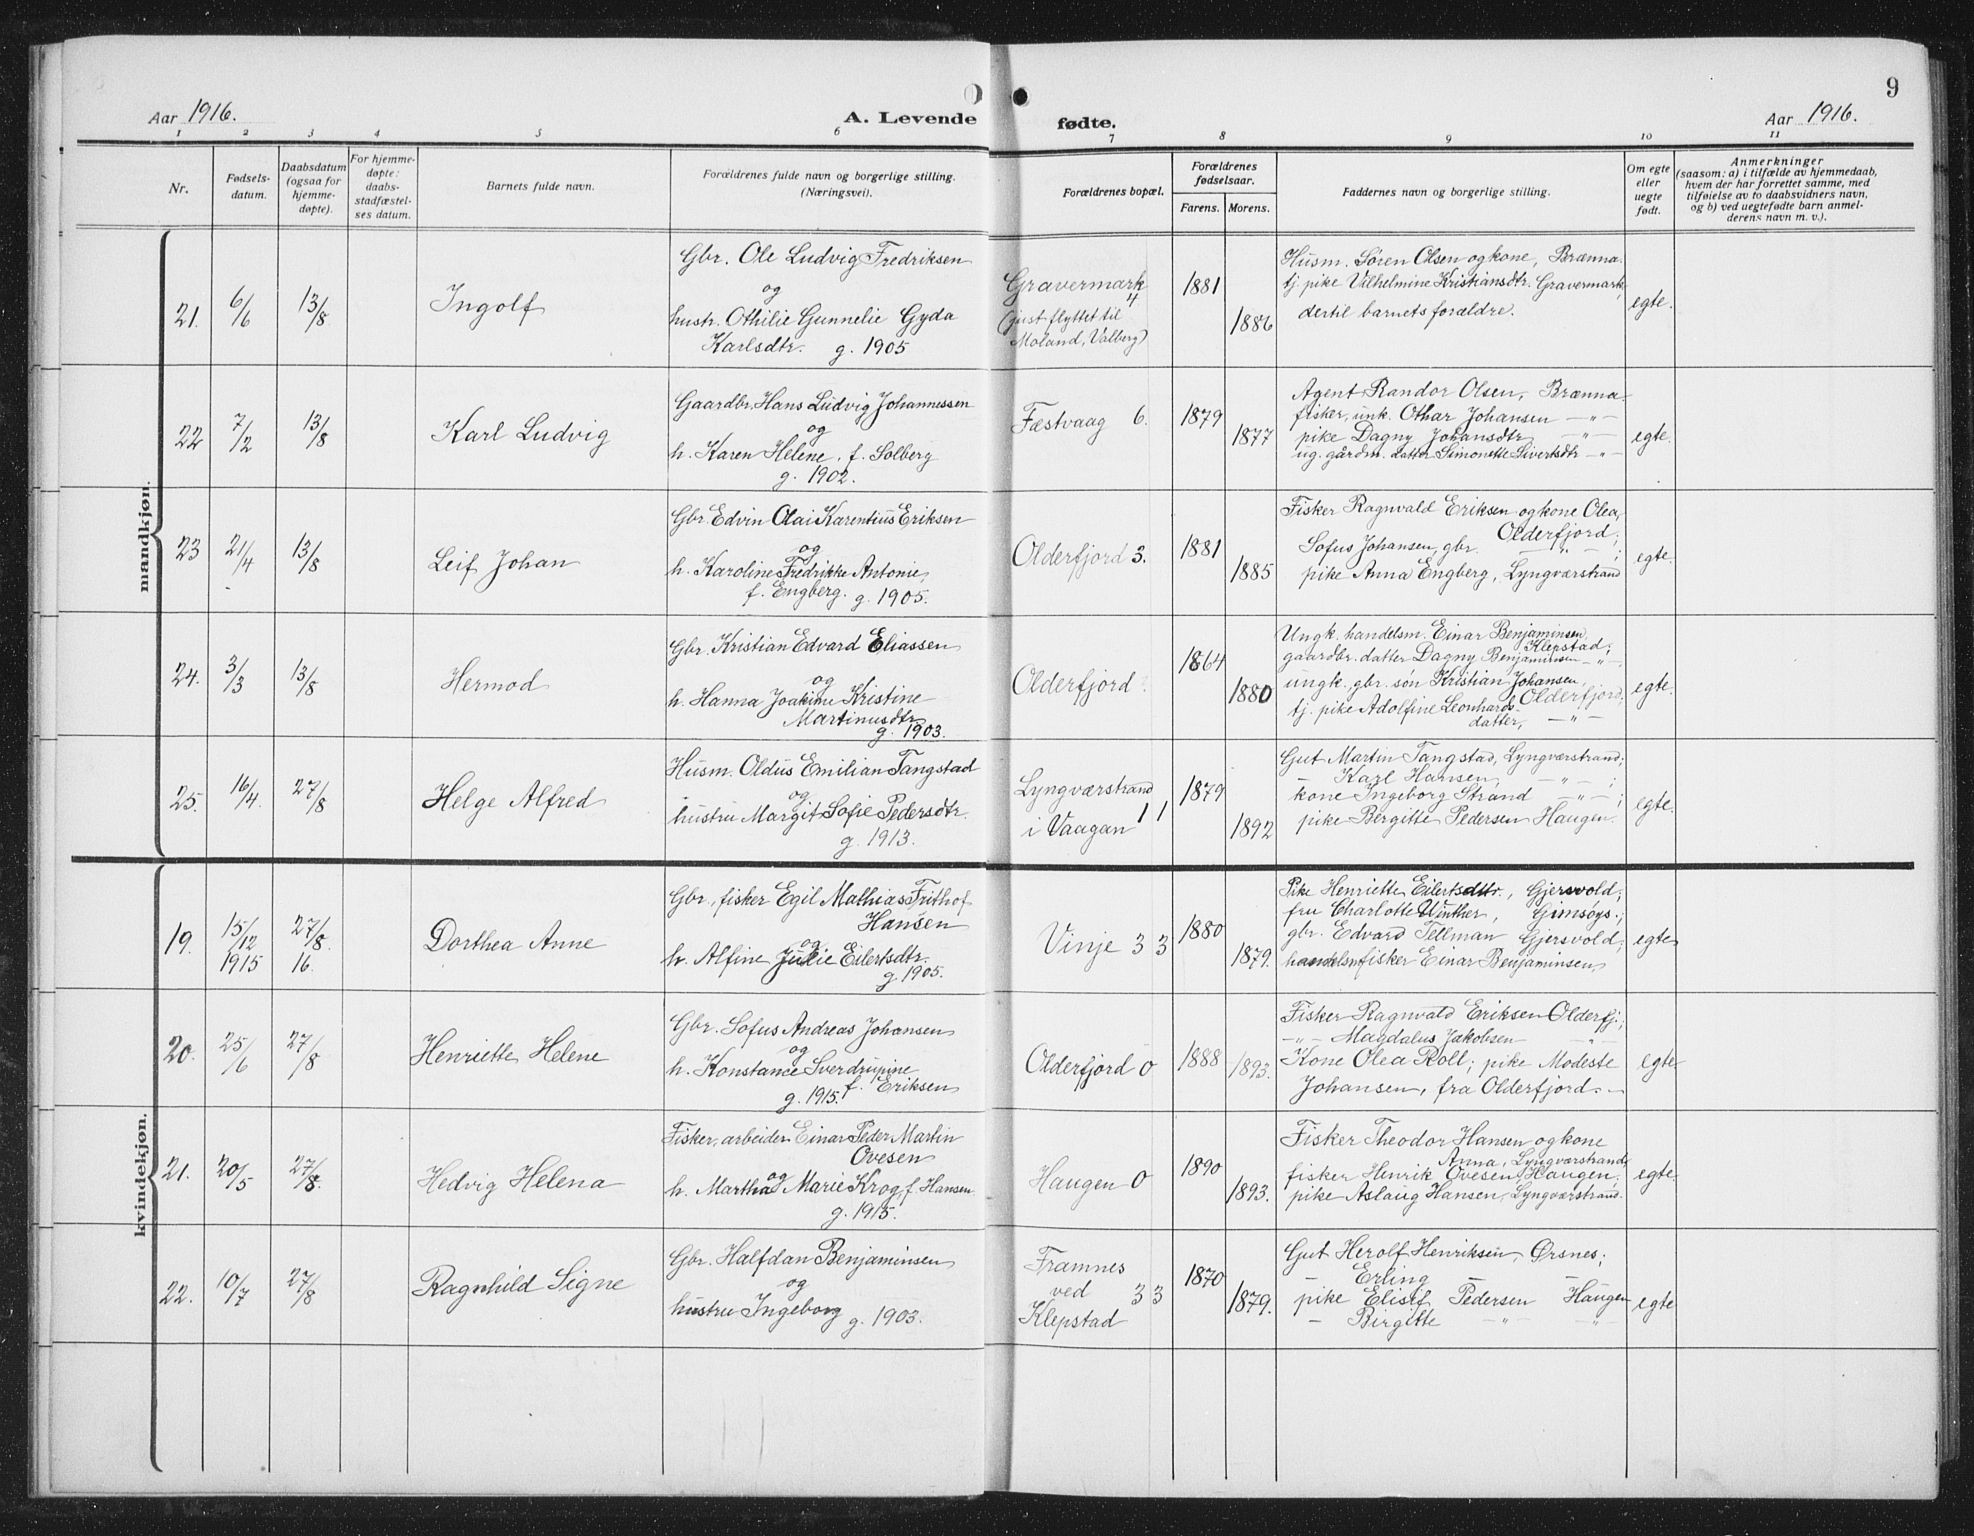 9
Aar 1916.
A. Levende fødte.
Aar 1916.
1 2 3 4 5 6 7 8 9 10 11
Nr.
Fødsels-
datum.
Daabsdatum
(ogsaa for
hjemme-
døpte).
For hjemme-
døpte:
daabs-
stadfæstel-
ses datum.
Barnets fulde navn.
Forældrenes fulde navn og borgerlige stilling.
(Næringsvei).
Forældrenes bopæl.
Forældrenes
fødselsaar.
Farens. Morens.
Faddernes navn og borgerlige stilling.
Om egte
eller
uegte
født.
Anmerkninger
(saasom: a) i tilfælde av hjemmedaab,
hvem der har forrettet samme, med
tilføielse av to daabsvidners navn,
og b) ved uegtefødte barn anmel-
derens navn m. v.).
mandkjøn.
21. 6/6 13/8 Ingolf
Gbr. Ole Ludvig Fredriksen
og
hustr. Othilie Gunnelie Gyda
Karlsdtr. g. 1905
Gravermark
4
(just flyttet til
Moland, Valberg)
1881
1886
Husm. Søren Olsen og kone, Brænna.
tj. pike Vilhelmine Kristiansdtr. Gravermark,
dertil barnets forældre.
egte.
22 7/2 13/8 Karl Ludvig
Gaardbr. Hans Ludvig Johannessen
og
h. Karen Helene, f. Solberg
g. 1902.
Fæstvaag 6.
1879
1877
Agent Randor Olsen, Brænna
fisker, unk. Othar Johansen -"-
pike Dagny Johansdtr -"-
ug. gårdm. datter Simonette Sivertsdtr -"-
egte.
23 21/4 13/8 Leif Johan
Gbr. Edvin Olai Karentius Eriksen
og
h. Karoline Fredrikke Antonie,
f. Engberg. g. 1905.
Olderfjord 3.
1881
1885
Fisker Ragnvald Eriksen og kone Olea,
Olderfjord;
Sofus Johansen, gbr. -"- ;
pike Anna Engberg, Lyngværstrand
egte.
24. 3/3 13/8 Hermod
Gbr. Kristian Edvard Eliassen
og
h. Hanna Joakime Kristine
Martinusdtr
g. 1903.
Olderfjord
1864
1880
Ungk. handelsm. Einar Benjaminsen,
Klepstad;
gaardbr. datter Dagny Benjaminsen -"-,
ungk. gbr. søn Kristian Johansen,
Olderfjord;
tj. pike Adolfine Leonhards-
datter, -"-
egte.
25. 16/4. 27/8 Helge Alfred
Husm. Oldus Emilian Tangstad
og
hustru Margit Sofie Pedersdtr.
g. 1913.
Lyngværstrand
1 1
i Vaagan
1879
1892
Gut Martin Tangstad, Lyngværstrand;
- Karl Hansen, -"- ;
kone Ingeborg Strand -"- ;
pike Bergitte Pedersen Haugen.
egte.
kvindekjøn.
19. 15/12 1915 27/8 16. Dorthea Anne
Gbr., fisker Egil Mathias Frithof
Hansen
og
h. Alfine Julie Eilertsdtr.
g. 1905.
Vinje 3 3
1880
1879.
Pike Henriette Eilertsdtr., Gjersvold;
fru Charlotte Winther, Gimsøys.;
gbr. Edvard Tellman Gjersvold;
handelsm fisker Einar Benjaminsen,
egte
20. 25/6 27/8 Henriette Helene
Gbr. Sofus Andreas Johansen
og
h. Konstance Sverdrupine
f. Eriksen
g. 1915.
Olderfjord 0
1888
1893.
Fisker Ragnvald Eriksen Olderfj.;
-"- Magdalus Jakobsen -"-
Kone Olea Roll; pike Modeste
Johansen, fra Olderfjord. -
egte.
21. 20/5 27/8. Hedvig Helena
Fisker, arbeider Einar Peder Martin
Ovesen
og
h. Martha Marie Krog f. Hansen
g. 1915.
Haugen 0
1890
1893.
Fisker Theodor Hansen og kone
Anna, Lyngværstrand;
fisker Henrik Ovesen, Haugen.
pike Aslaug Hansen, Lyngværstrand.
egte.
22. 10/7 27/8 Ragnhild Signe
Gbr. Halfdan Benjaminsen
og
hustru Ingeborg g. 1903.
Framnes
ved 3 3
Klepstad
1870
1879.
Gut Herolf Henriksen, Ørsnes;
- Erling - -
pike Elisif Pedersen Haugen
- Birgitte -"- -"-
egte